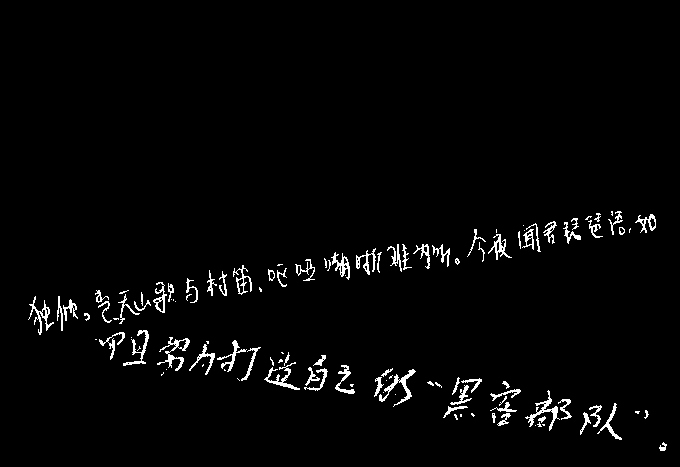 独倾。岂无山歌与村笛、呕哑嘲哳难为听。今夜闻君琵琶语,如
且努力打造自己的“黑客部队”。